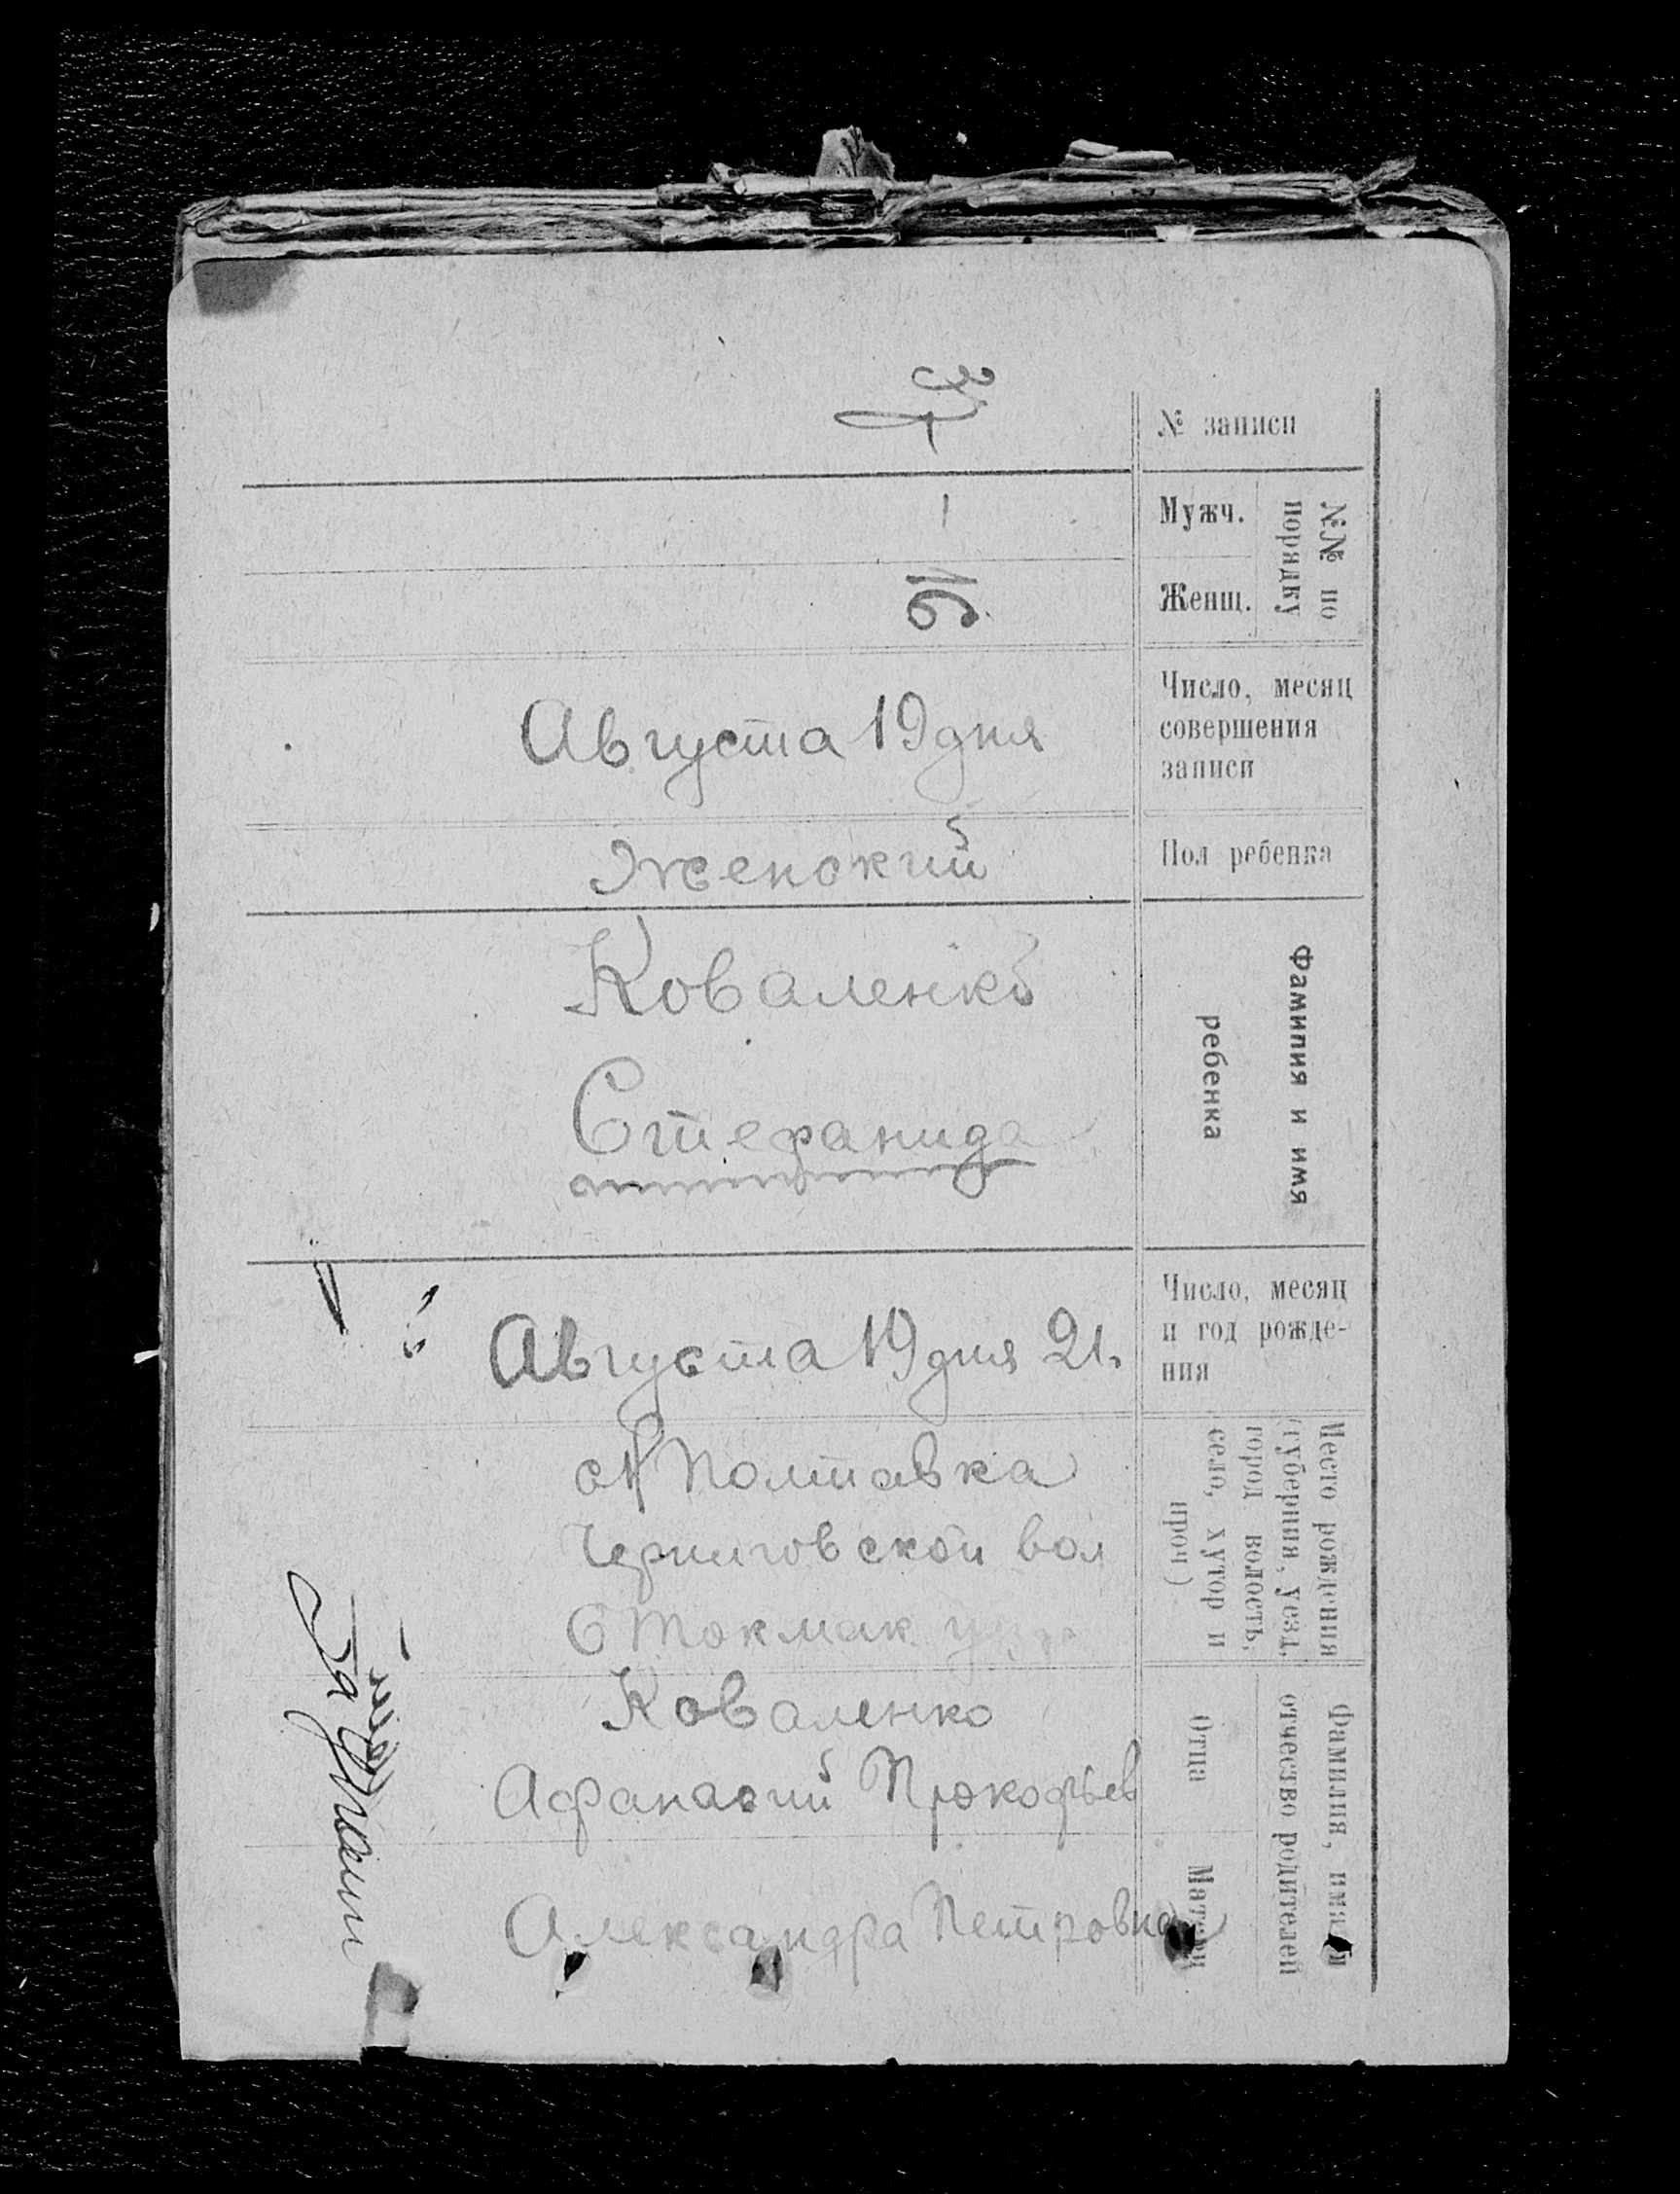 № записи
№№ по
порядку
Мужч.
1
Женщ.
16
Число, месяц
совершения
записи
Августа 19 дня
Пол ребенка
Женский
Фамилия и имя
ребенка
Коваленко
Стефанида
Число, месяц
и год рожде-
ния
Августа 19 дня 21.
Место рождения
(губерния, уезд,
город волость,
село, хутор и
проч)
Полтавка
Черниговской вол
Токмак
Фамилия, имя и
отчество родителей
Отца
Коваленко
Афанасий Прокофьев
Матери
Александра Петровна